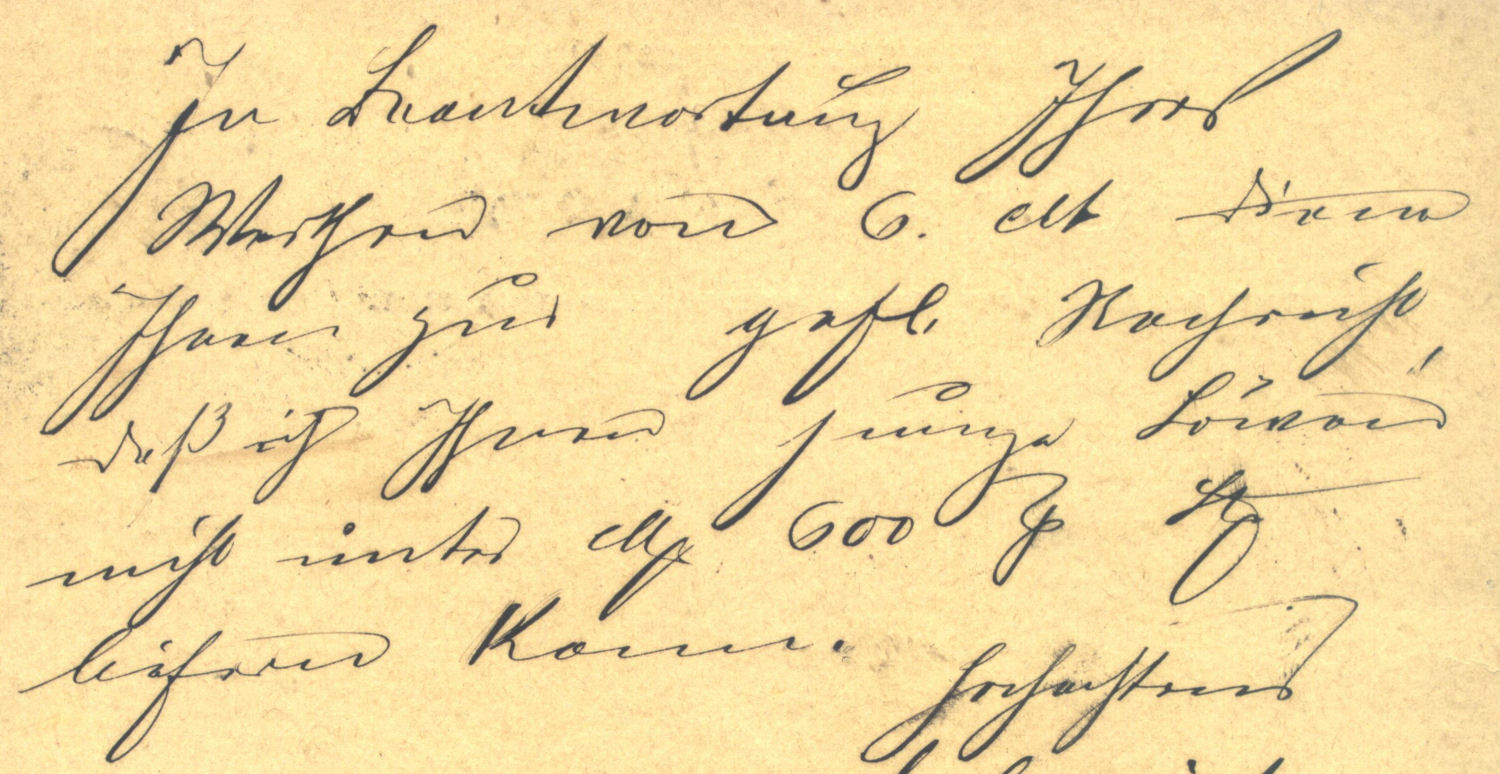 In Beantwortung Ihres
Werthen vom 6. dM diene
Ihnen zur gefl. Nachricht,
daß ich Ihnen junge Löwen
nicht unter M 600 p St
liefern kann.
Hochachtend